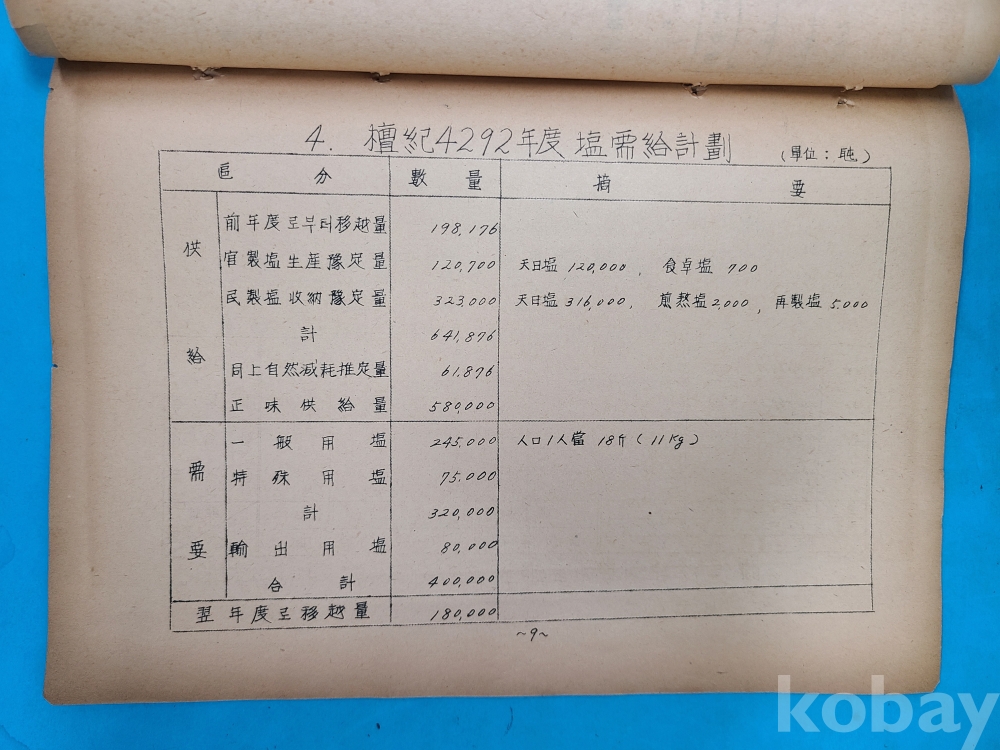 4. 檀紀4292年度 塩需給計劃
(單位: 瓲)
區分 數量 摘要
供給
前年度로부터移越量 198,176
官製塩生産豫定量 120,700 天日塩 120,000, 食卓塩 700
民製塩收納豫定量 323,000 天日塩 316,000, 煎熬塩 2,000, 再製塩 5.000
計 641,876
同上自然減耗推定量 61,876
正味供給量 580,000
需要
一般用塩 245,000 人口1人當 18斤(11kg)
特殊用塩 75.000
計 320,000
輸出用塩 80,000
合計 400,000
翌年度로移越量 180,000
~9~
kobay